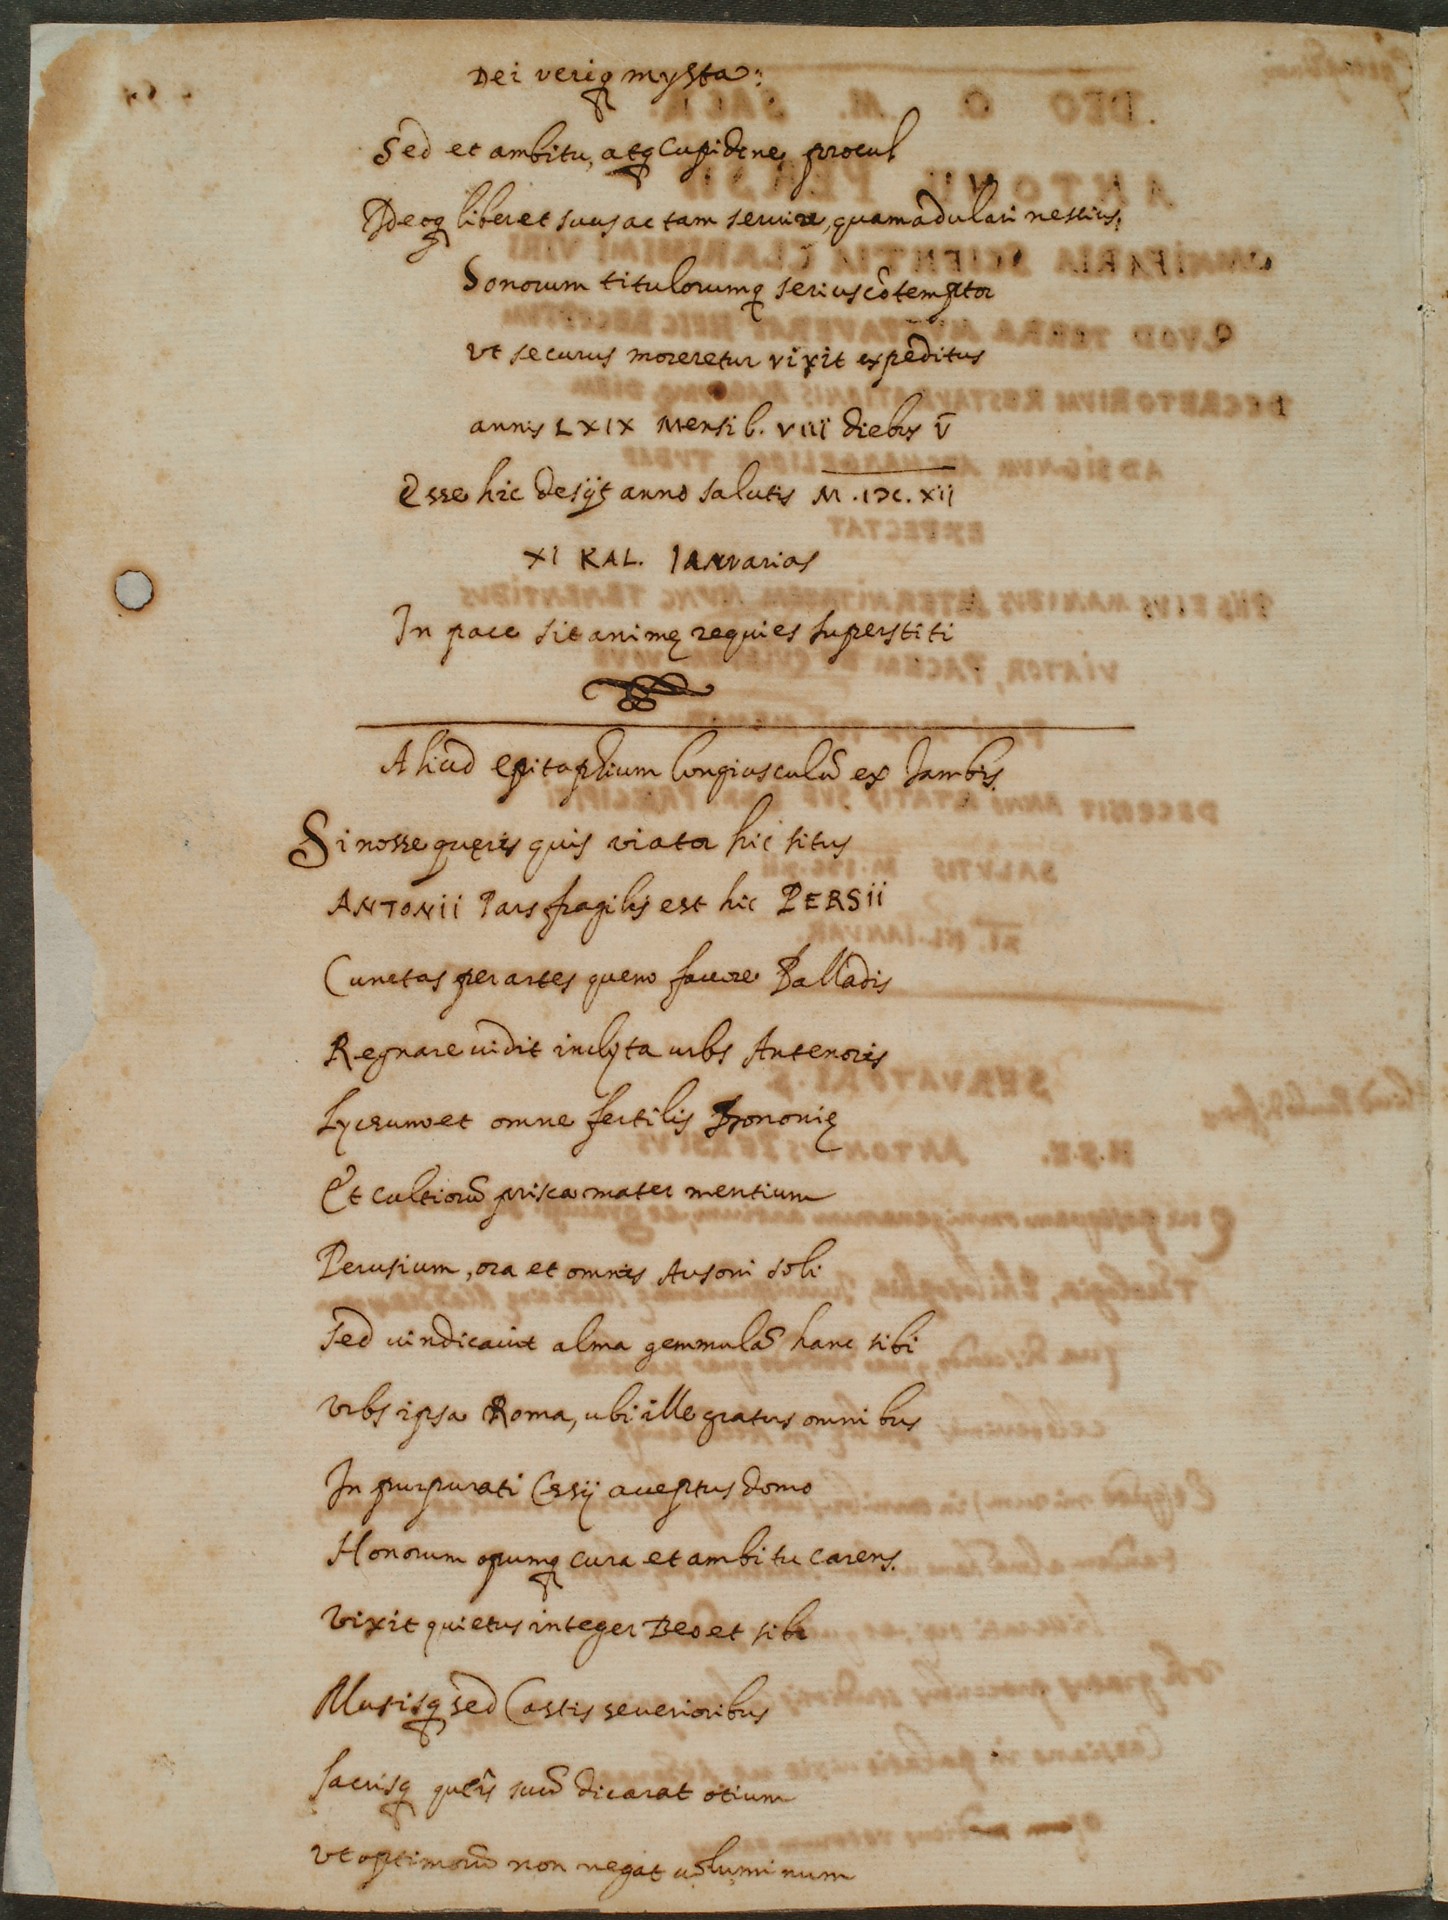 Dei veriq mysta:
Sed et ambitu, atq Cupidine procul
Ideoq liber et suus ac tam servire, quam adulari nescius,
Sonorum titulorumq serius cōtemptor
vt securus moreretur vixit expeditus
annis LXIX Mensib. VIII diebus V
Esse hic desijt anno salutis M.IƆC.XII
XI KAL. IANVarias
In pace sit animę requies superstiti
Aliud epitaphium longiusculū ex Iambis.
Si nosse quęris quis viator hic situs
ANTONII Pars fragilis est hic PERSII
Cunctas per artes quem favore Palladis
Regnare vidit inclyta urbs Antenoris
Lyceum et omne fertilis Bononię
Et cultiorū prisca mater mentium
Perusium, ora et omnis Ausoni soli
Sed vindicavit alma gemmulā hanc sibi
Vrbs ipsa Roma, ubi ille gratus omnibus
In purpurati Cęsij acceptus domo
Honorum opumq cura et ambitu carens.
Vixit quietus integer Deo et sibi
Musisq sed Castis severioribus
Sacrisq queîs suū dicarat otium
Vt optimorū non negat voluminum